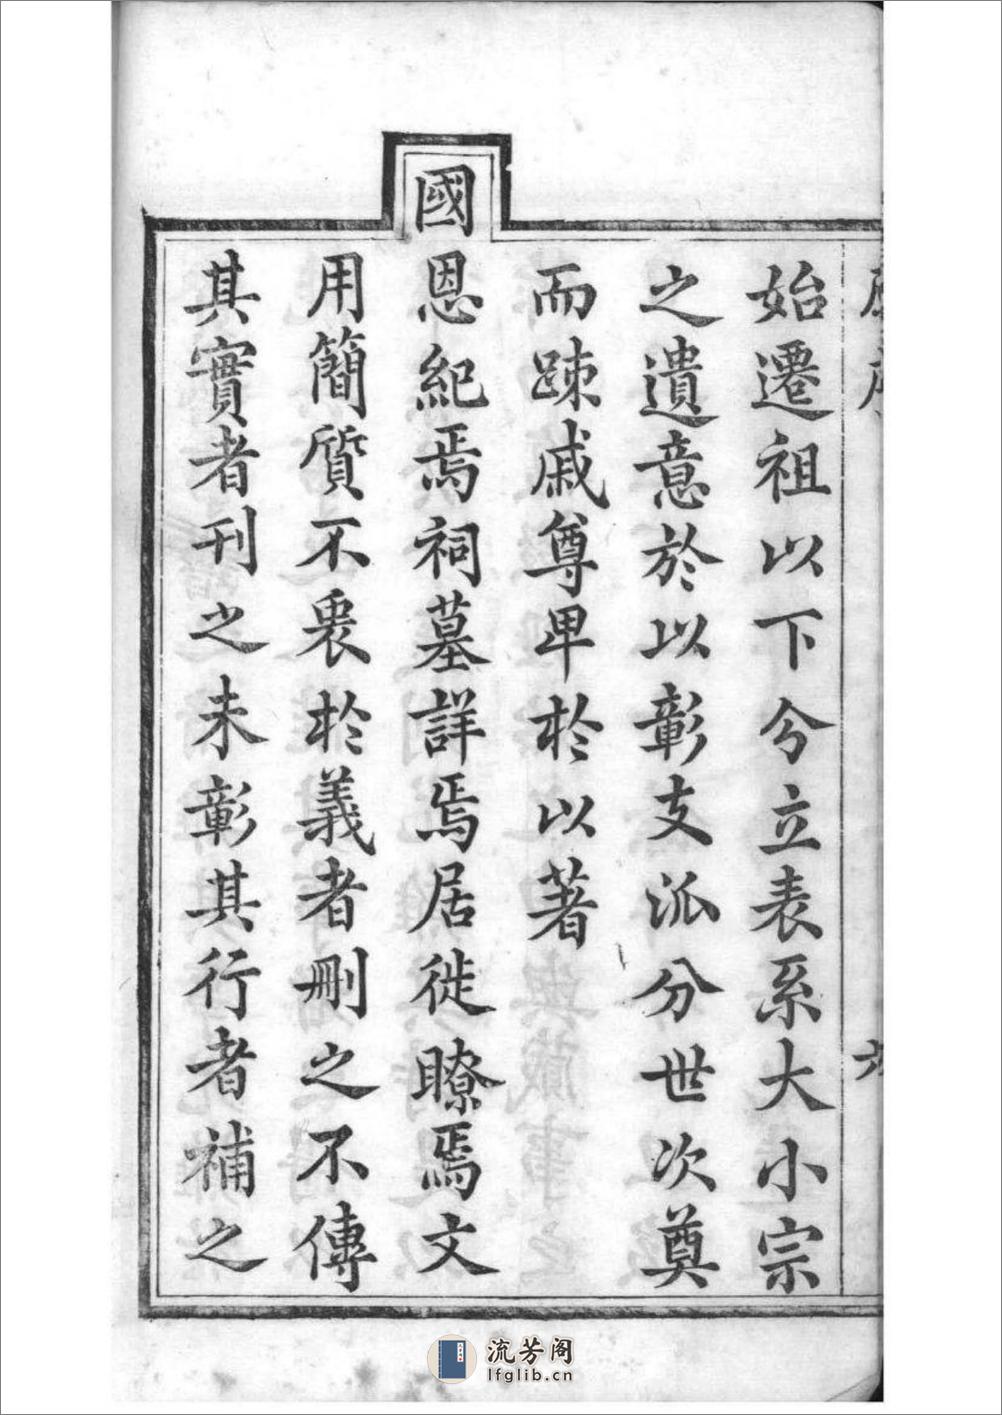 始遷祖以下分立表系大小宗
之遺意於以彰支派分世次奠
而疎戚尊卑於以著
國恩紀焉祠墓詳焉居徙瞭焉文
用簡質不衷於義者刪之不傳
其實者刊之未彰其行者補之
流芳阁
lfglib.cn